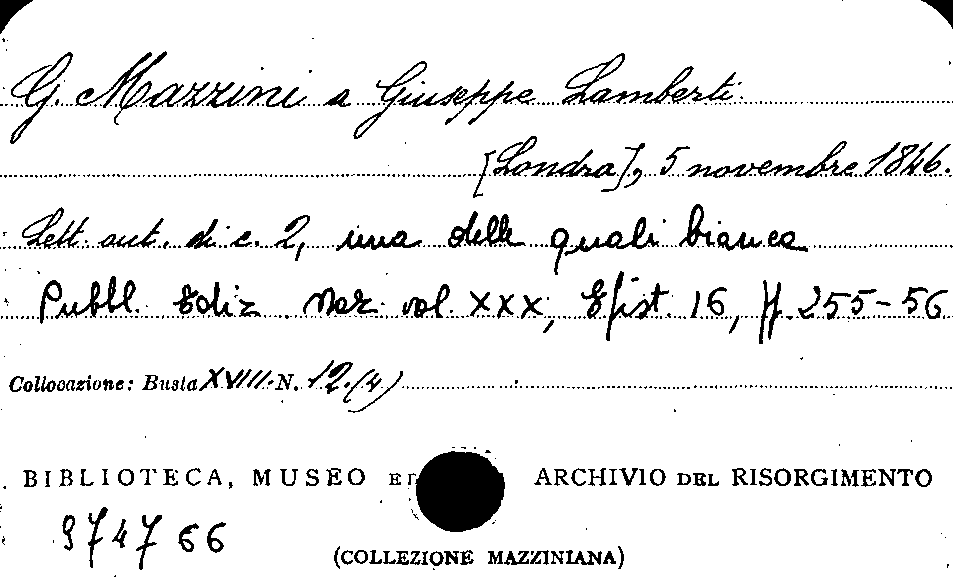 G. Mazzini a Giuseppe Lamberti.
[Londra], 5 novembre 1846.
Lett. aut. di c. 2, una delle quali bianca
Pubbl. Ediz. Naz. vol. XXX, Epist. 16, pp. 255-56
Collocazione: Busta XVIII. N. 12.(4)
BIBLIOTECA, MUSEO ED ARCHIVIO DEL RISORGIMENTO
974766
(COLLEZIONE MAZZINIANA)